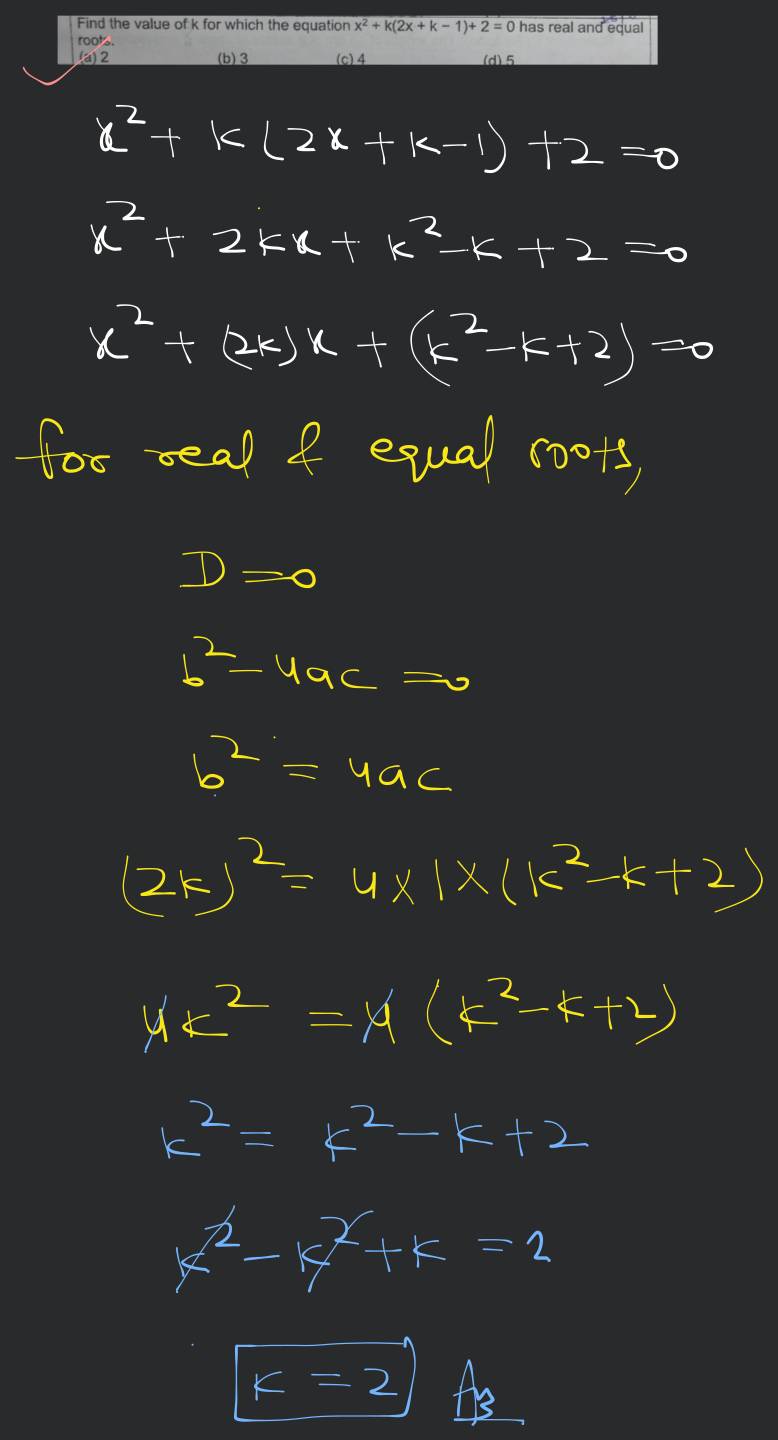 Find the value of k for which the equation x² + k(2x + k – 1)+ 2 = 0 has real and equal
roots.
(a) 2 (b) 3 (c) 4 (d) 5
x² + k(2x + k-1) + 2 = 0
x² + 2kx + k² - k + 2 = 0
x² + (2k)x + (k² - k + 2) = 0
for real & equal roots,
D = 0
b² - 4ac = 0
b² = 4ac
(2k)² = 4 × 1 × (k² - k + 2)
4k² = 4 (k² - k + 2)
k² = k² - k + 2
k² - k² + k = 2
k = 2 Ans